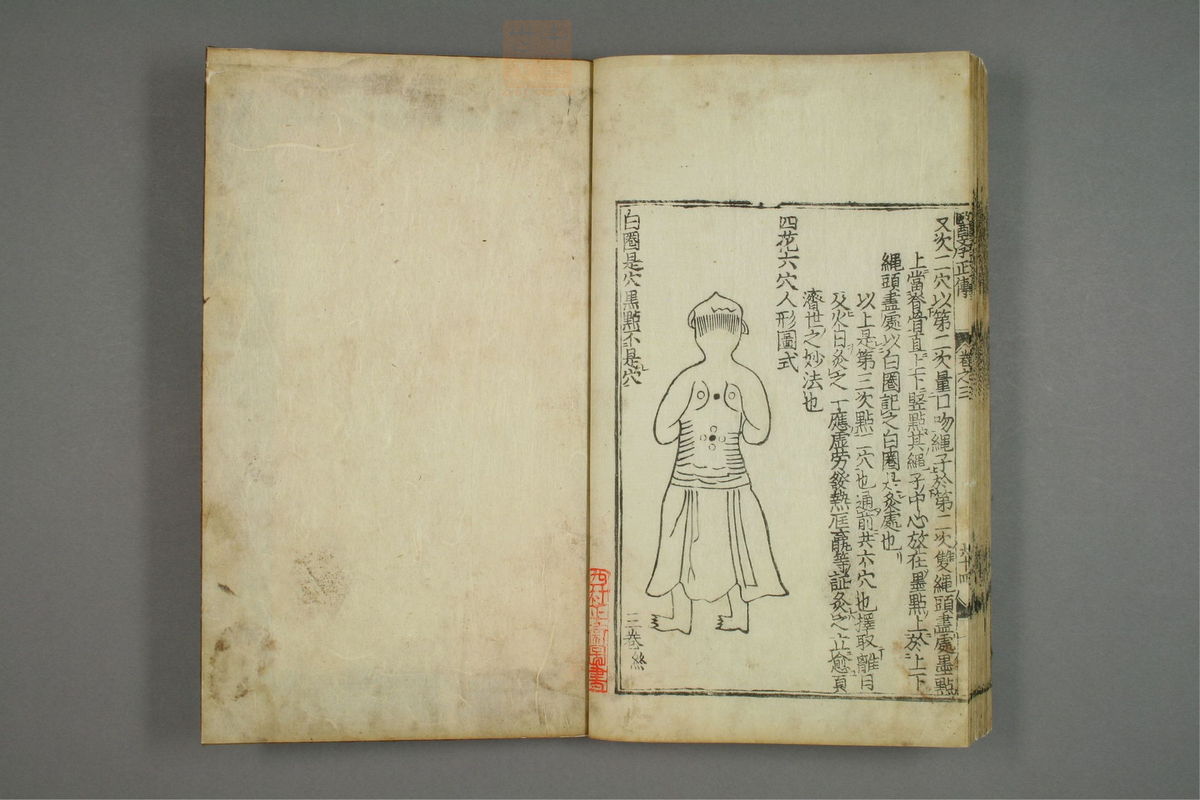 醫學正傳 卷之三 六十四
又次二穴以第二次量口吻繩子於第二次雙繩頭盡處墨點
上當脊骨直上下竪點其繩子中心放在墨點上於上下
繩頭盡處以白圈記之白圈是灸處也
以上是第三次點二穴也通前共六穴也擇取離日
及火日灸之一應虛勞發熱尫羸等証灸之立愈真
濟世之妙法也
四花六穴人形圖式
白圈是穴黒點不是穴
三卷終